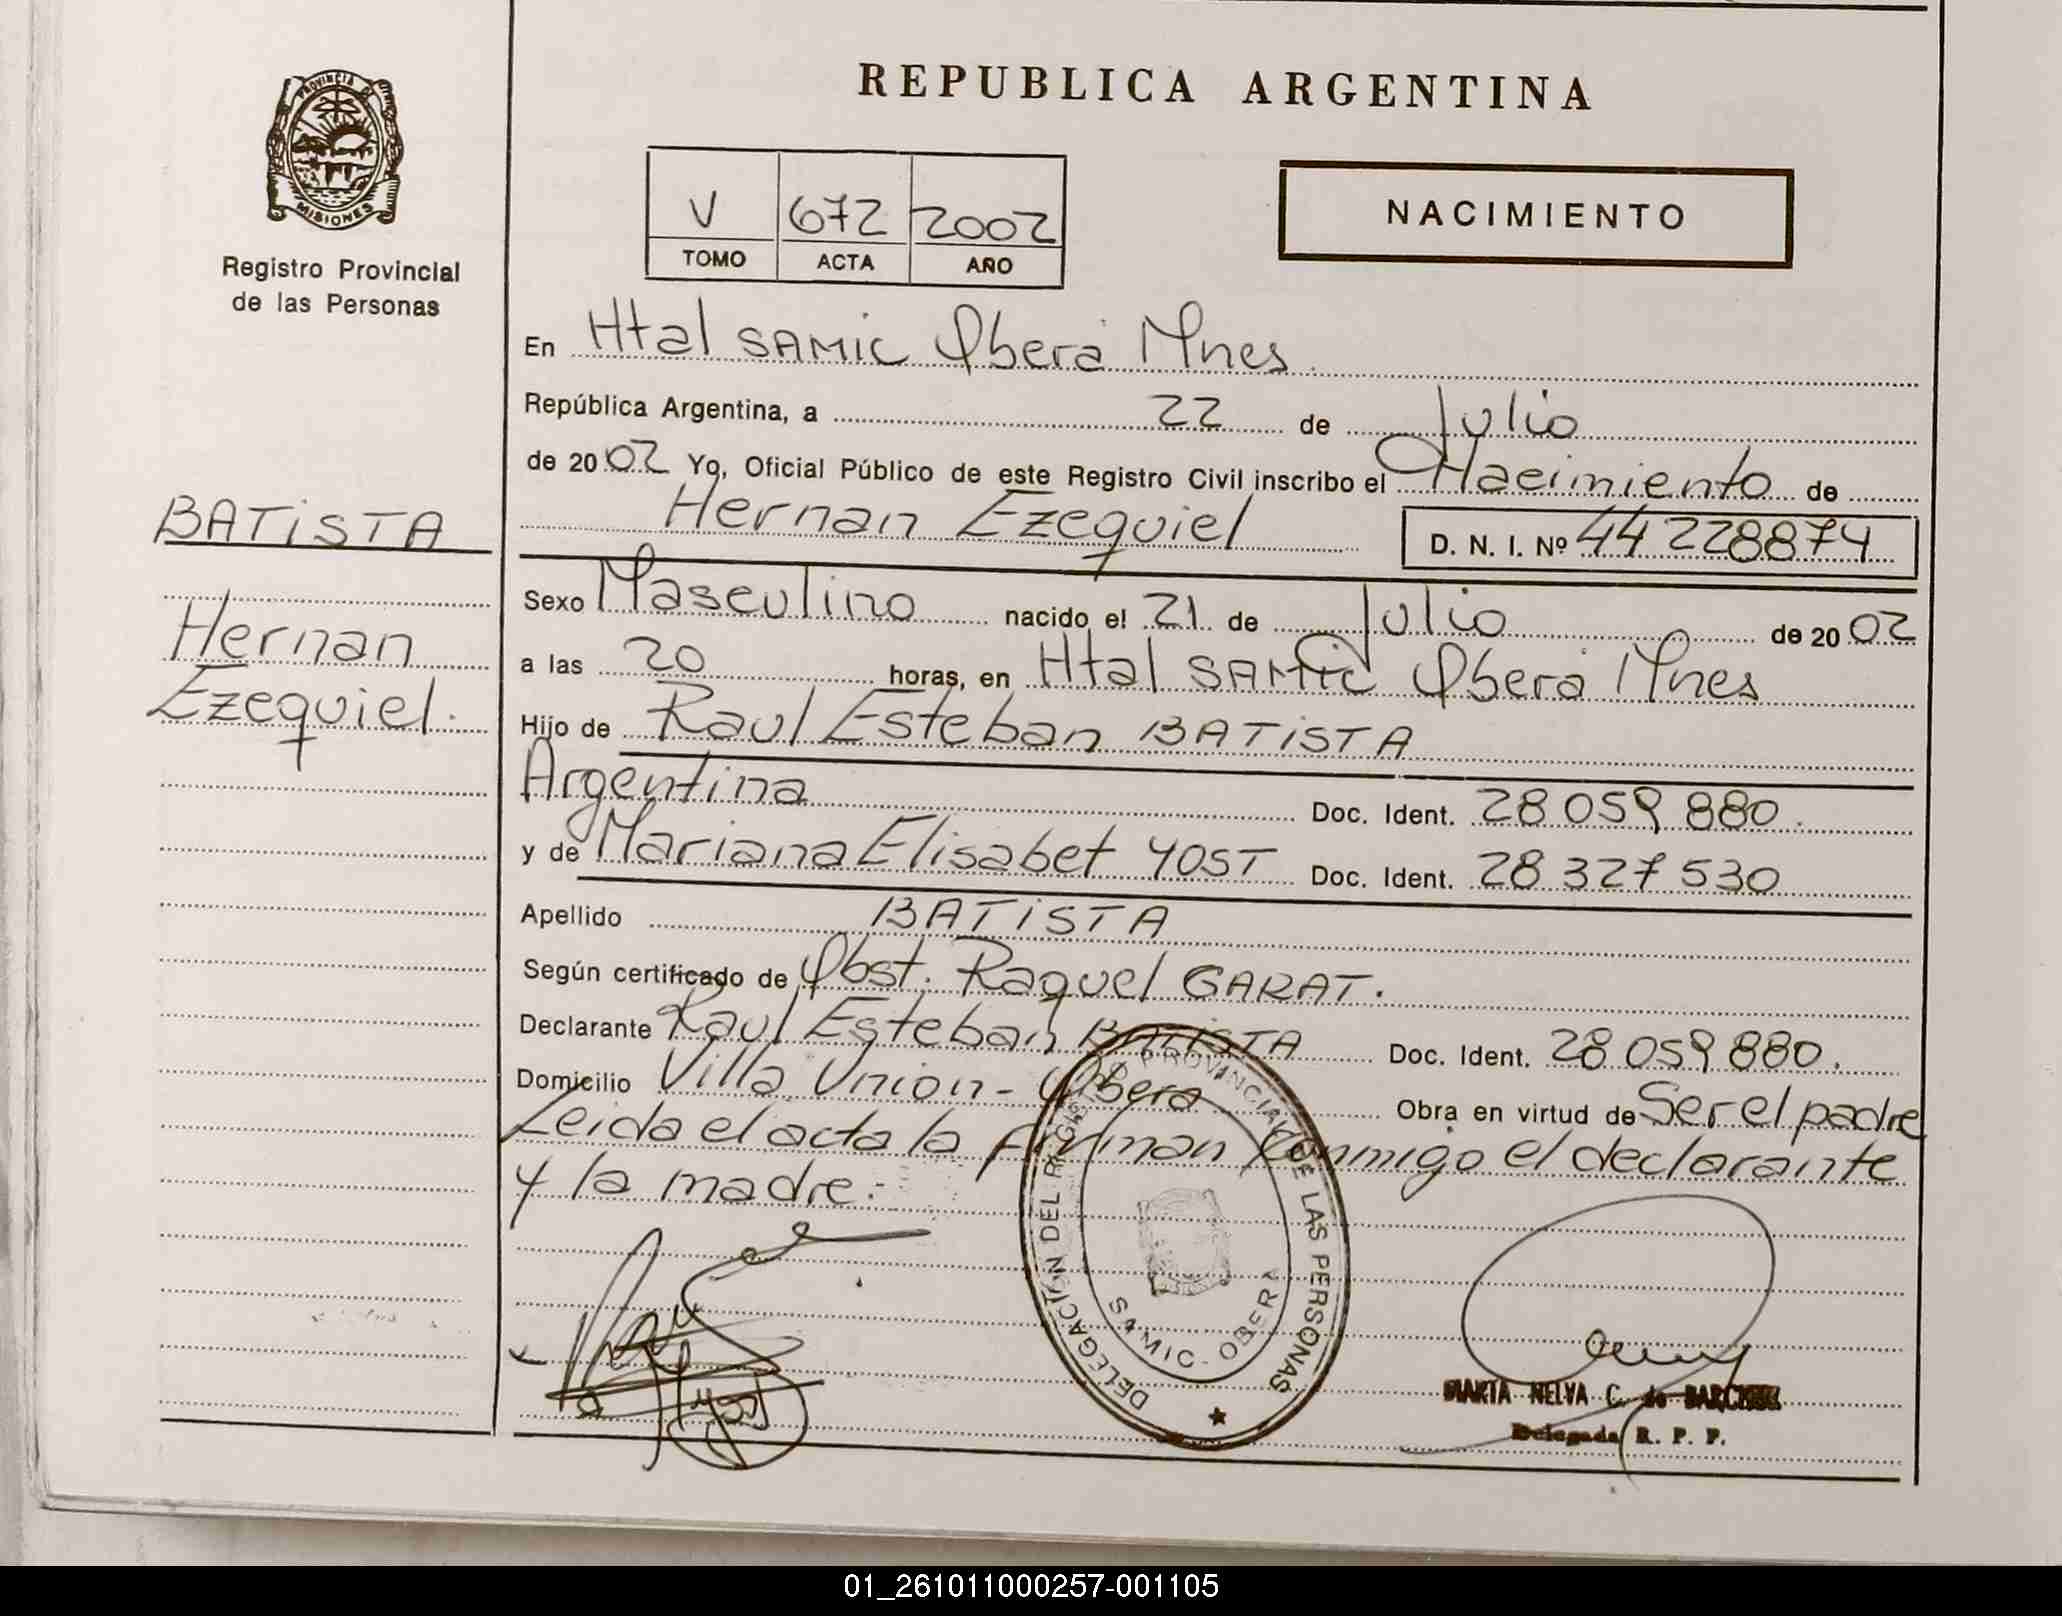 REPUBLICA ARGENTINA
PROVINCIA DE
MISIONES
Registro Provincial
de las Personas
V 672 2002
TOMO ACTA AÑO
NACIMIENTO
En Htal SAMIC Oberá Mnes
República Argentina, a 22 de Julio
de 2002 Yo, Oficial Público de este Registro Civil inscribo el Nacimiento de
Hernan Ezequiel D. N. I. Nº 44 228874
BATISTA
Hernan
Ezequiel.
Sexo Masculino nacido el 21 de Julio de 2002
a las 20 horas, en Htal SAMIC Oberá Mnes
Hijo de Raul Esteban BATISTA
Argentina Doc. Ident. 28 059 880.
y de Mariana Elisabet YOST Doc. Ident. 28 327 530
Apellido BATISTA
Según certificado de Obst. Raquel GARAT.
Declarante Raul Esteban BATISTA Doc. Ident. 28 059 880.
Domicilio Villa Union - Oberá Obra en virtud de Ser el padre
Leida el acta la firman conmigo el declarante
y la madre:-
DELEGACIÓN DEL REGISTRO PROVINCIAL DE LAS PERSONAS
SAMIC - OBERA
MARTA NELVA C. de
Delegada R. P. P.
01_261011000257-001105